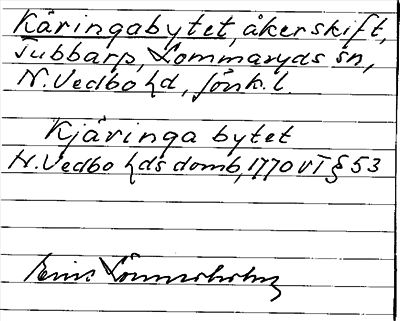 Käringabytet, åkerskift,
Tubbarp, Lommaryds sn,
N. Vedbo hd, Jönk. l.
Kjäringa bytet
N. Vedbo hds domb, 1770 vT § 53